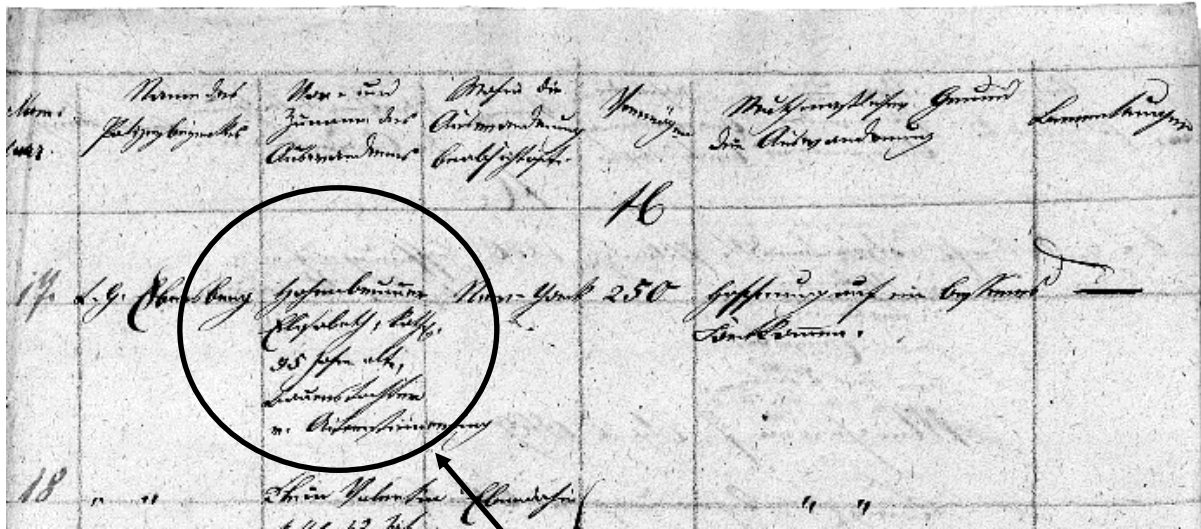 Name des
Polizeybezirkes
Vor- und
Zuname des
Auswanderers
Wohin die
Auswanderung
beabsichtigt
Vermögen
Muthmaßlicher Grund
der Auswanderung
Bemerkungen
17. L.G. Ebersberg
Hohenbrunner
Elisabeth, kath.
35 Jahre alt,
Bauerstochter
v.
New-York
250
Hoffnung auf ein besseres
18 " "
Valentin
Ebendahin
" "